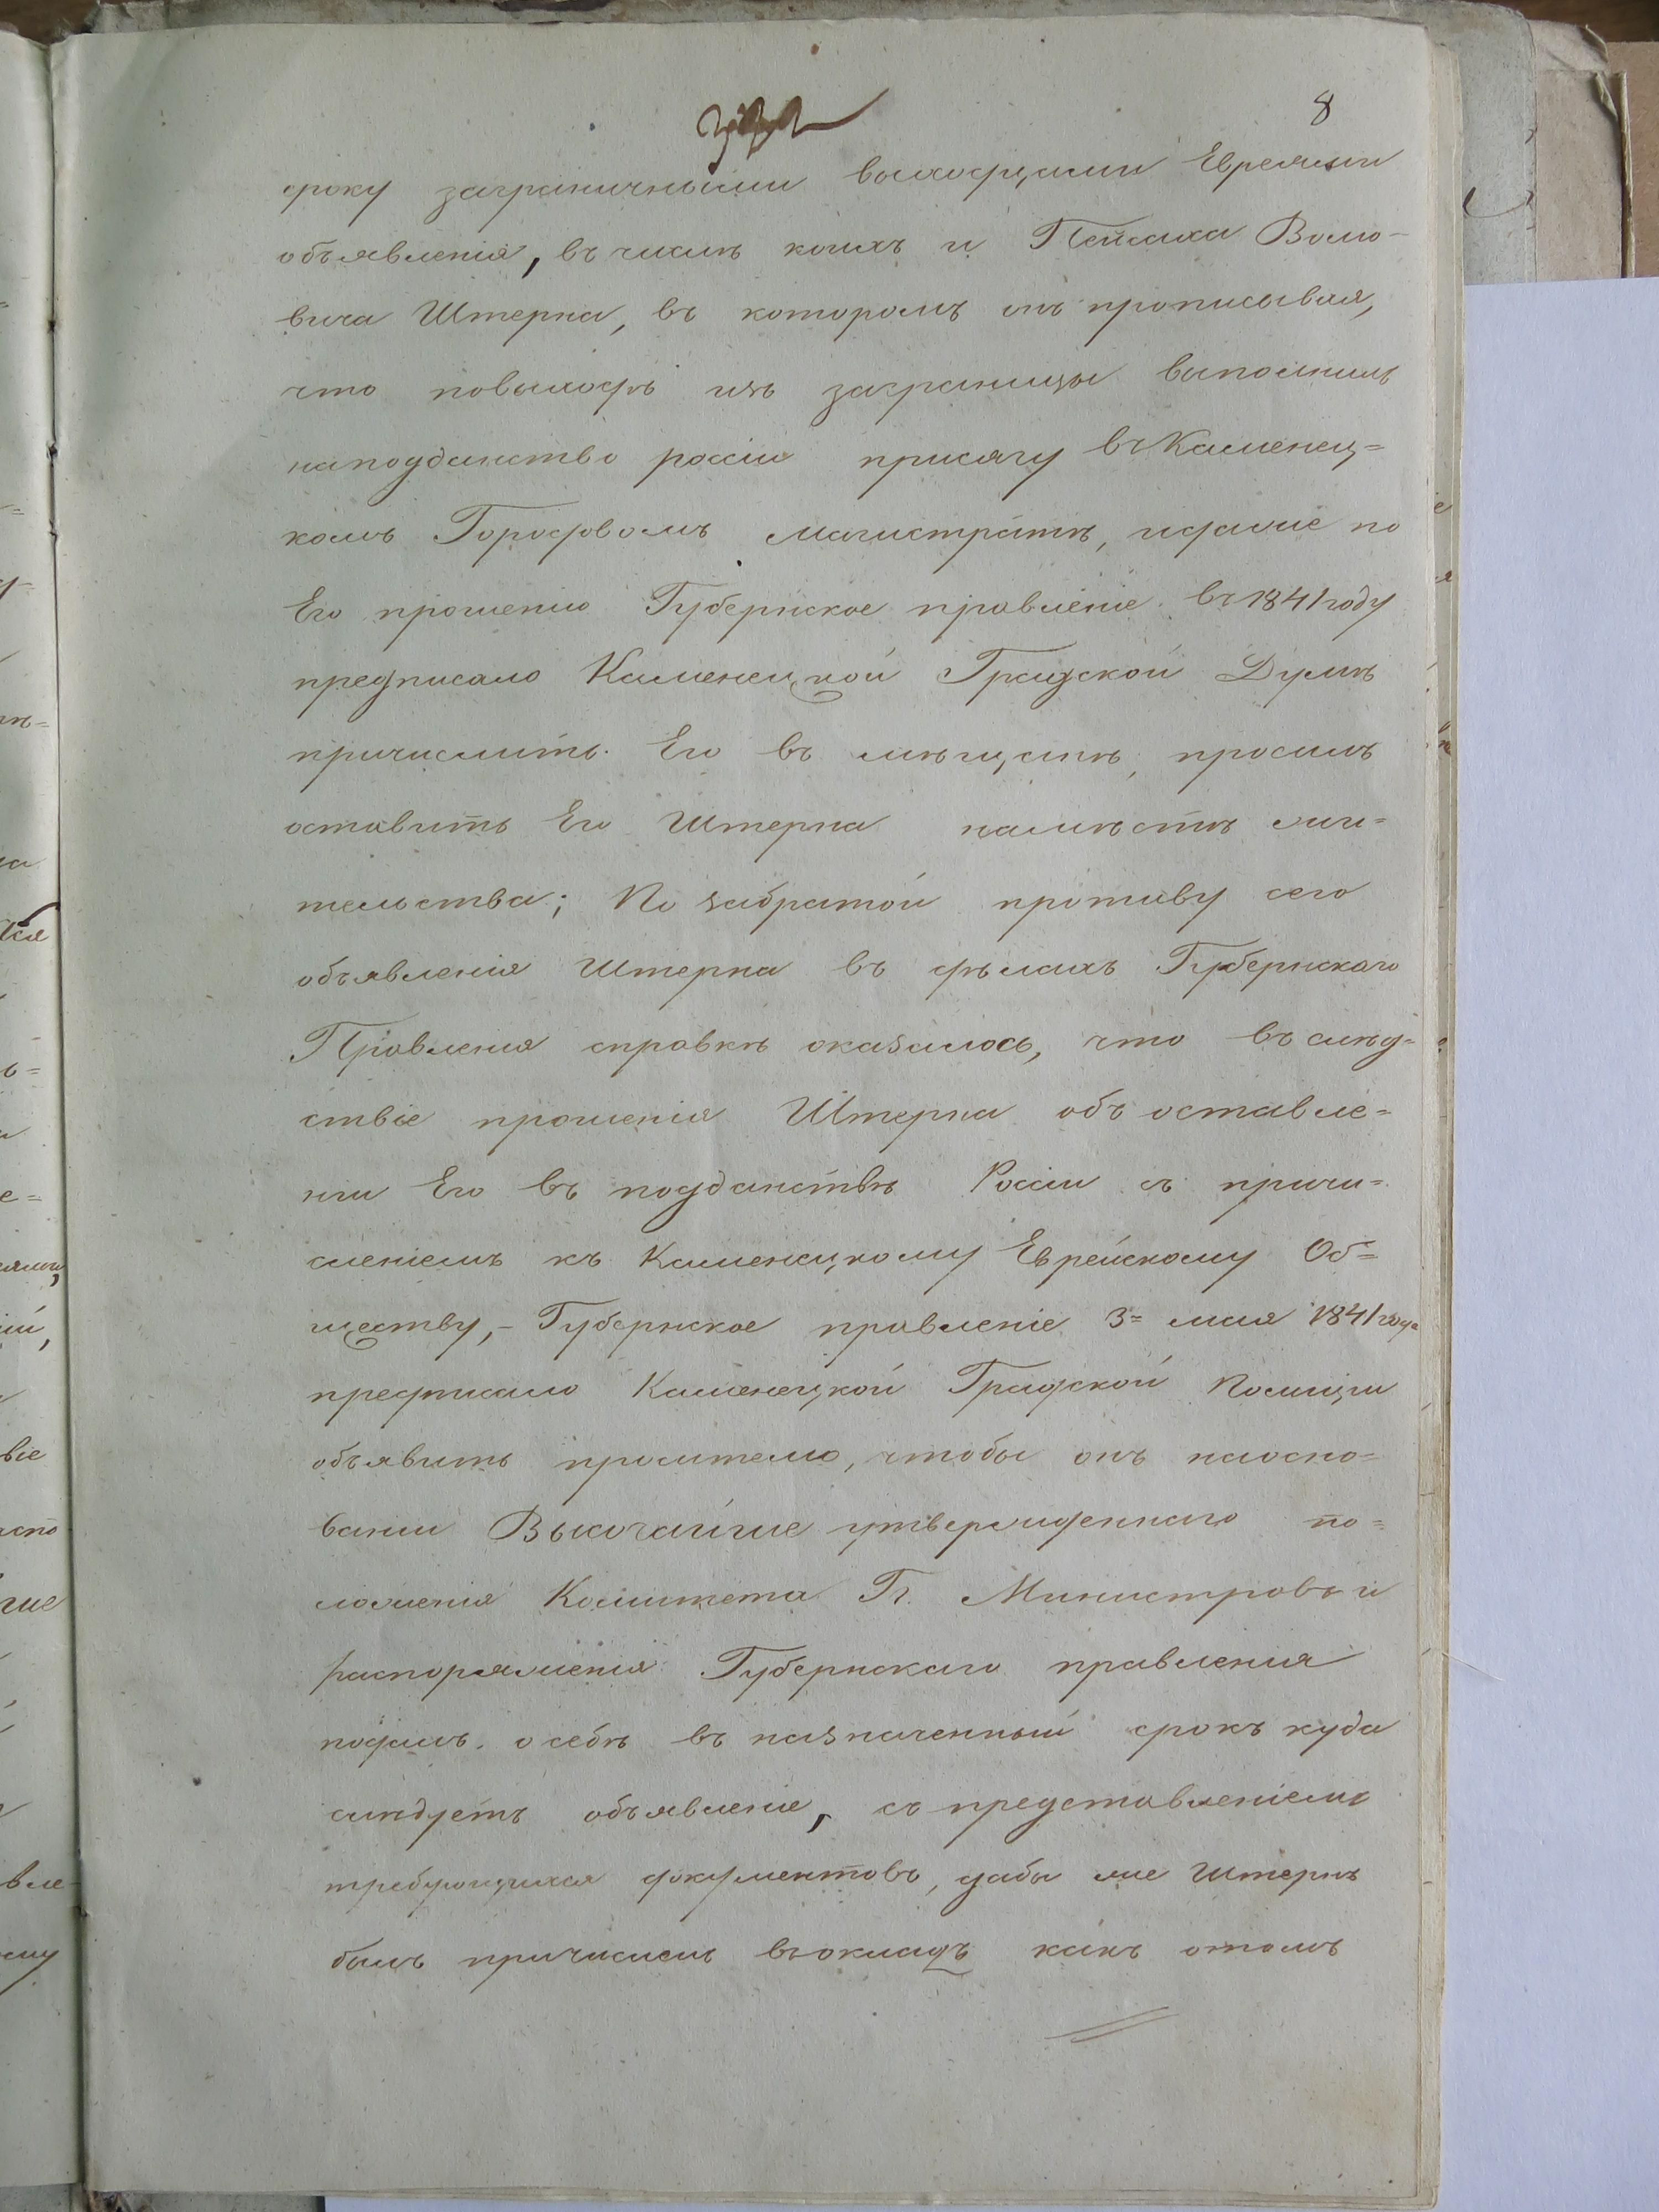 8
сроку заграничными выходцами Евреями
объявленія, въ числѣ коихъ и Пейсаха Волю-
вича Штерна, въ которомъ онъ прописывая,
что повыходѣ изъ заграницы выполнилъ
наподданство россіи присягу въ Каменец=
комъ Городовомъ магистратѣ, идалие по
Его прошенію Губернское правленіе въ 1841 году
предписало Каменецкой Градской Думѣ
причислить Его въ мѣщане, просилъ
оставить Его Штерна намѣстѣ жи=
тельства; По забратой противу сего
объявленія Штерна въ дѣлахъ Губернскаго
Правленія справкѣ оказалось, что въ слѣд=
ствіе прошенія Штерна объ оставле=
ніи Его въ подданствѣ Россіи съ причи=
сленіемъ къ Каменецкому Еврейскому Об=
ществу,- Губернское правленіе 3= мая 1841 года
предписало Каменецкой Градской Полиціи
объявить просителю, чтобы онъ наосно=
ваніи Высочайше утвержденнаго по=
ложенія Комитета Гг. Министровъ и
распоряженія Губернскаго правленія
подалъ о себѣ въ назначенный срокъ куда
слѣдуетъ объявленіе, съ представленіемъ
требующихся документовъ, дабы же Штернъ
былъ причисленъ въ окладъ какъ отомъ